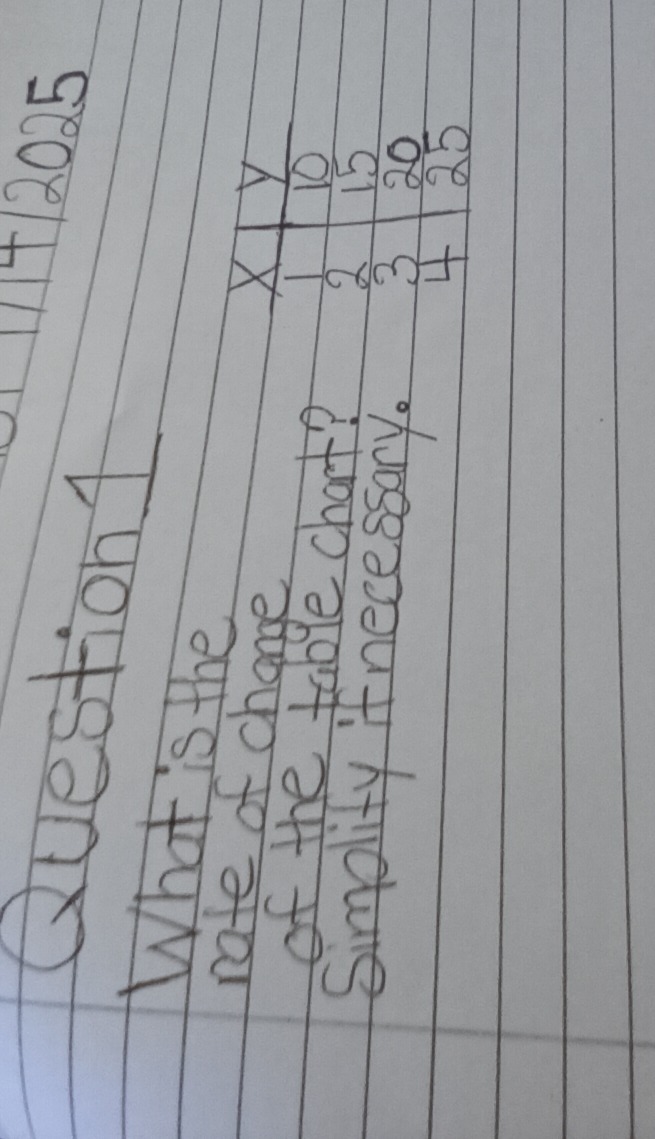 1/14/2025
Question 1
What is the
rate of change
of the table chart?
Simplify if necessary.
X Y
1 10
2 15
3 20
4 25